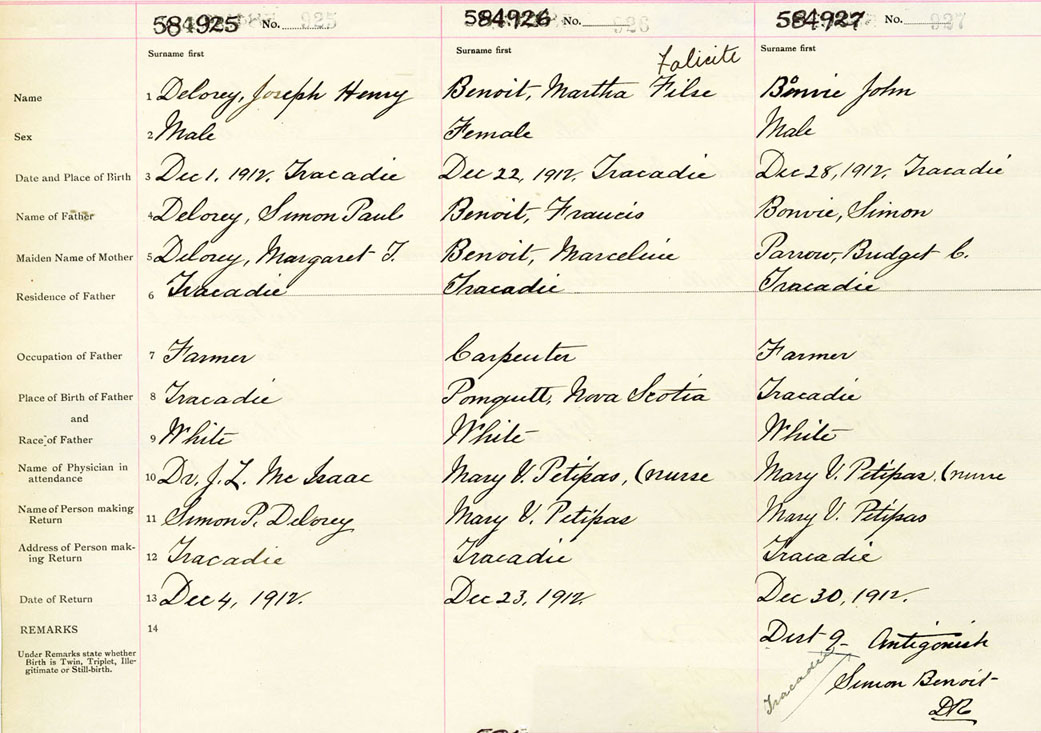 584925 No. 925 584926 No. 926 584927 No. 927
Surname first Surname first Surname first
Falicite
Name 1 Delorey, Joseph Henry Benoit, Martha Filse Bonvie John
Sex 2 Male Female Male
Date and Place of Birth 3 Dec 1, 1912. Tracadie Dec 22, 1912. Tracadie Dec 28, 1912. Tracadie
Name of Father 4 Delorey, Simon Paul Benoit, Francis Bonvie, Simon
Maiden Name of Mother 5 Delorey, Margaret J. Benoit, Marceline Parrow, Bridget C.
Residence of Father 6 Tracadie Tracadie Tracadie
Occupation of Father 7 Farmer Carpenter Farmer
Place of Birth of Father 8 Tracadie Pomquett, Nova Scotia Tracadie
and
Race of Father 9 White White White
Name of Physician in
attendance 10 Dr. J. L. Mc Isaac Mary V. Petipas, (nurse Mary V. Petipas, (nurse
Name of Person making
Return 11 Simon P. Delorey Mary V. Petipas Mary V. Petipas
Address of Person mak-
ing Return 12 Tracadie Tracadie Tracadie
Date of Return 13 Dec 4, 1912. Dec 23, 1912. Dec 30, 1912.
REMARKS 14
Under Remarks state whether
Birth is Twin, Triplet, Ille-
gitimate or Still-birth.
Dist 9 Antigonish
Tracadie
Simon Benoit
DR